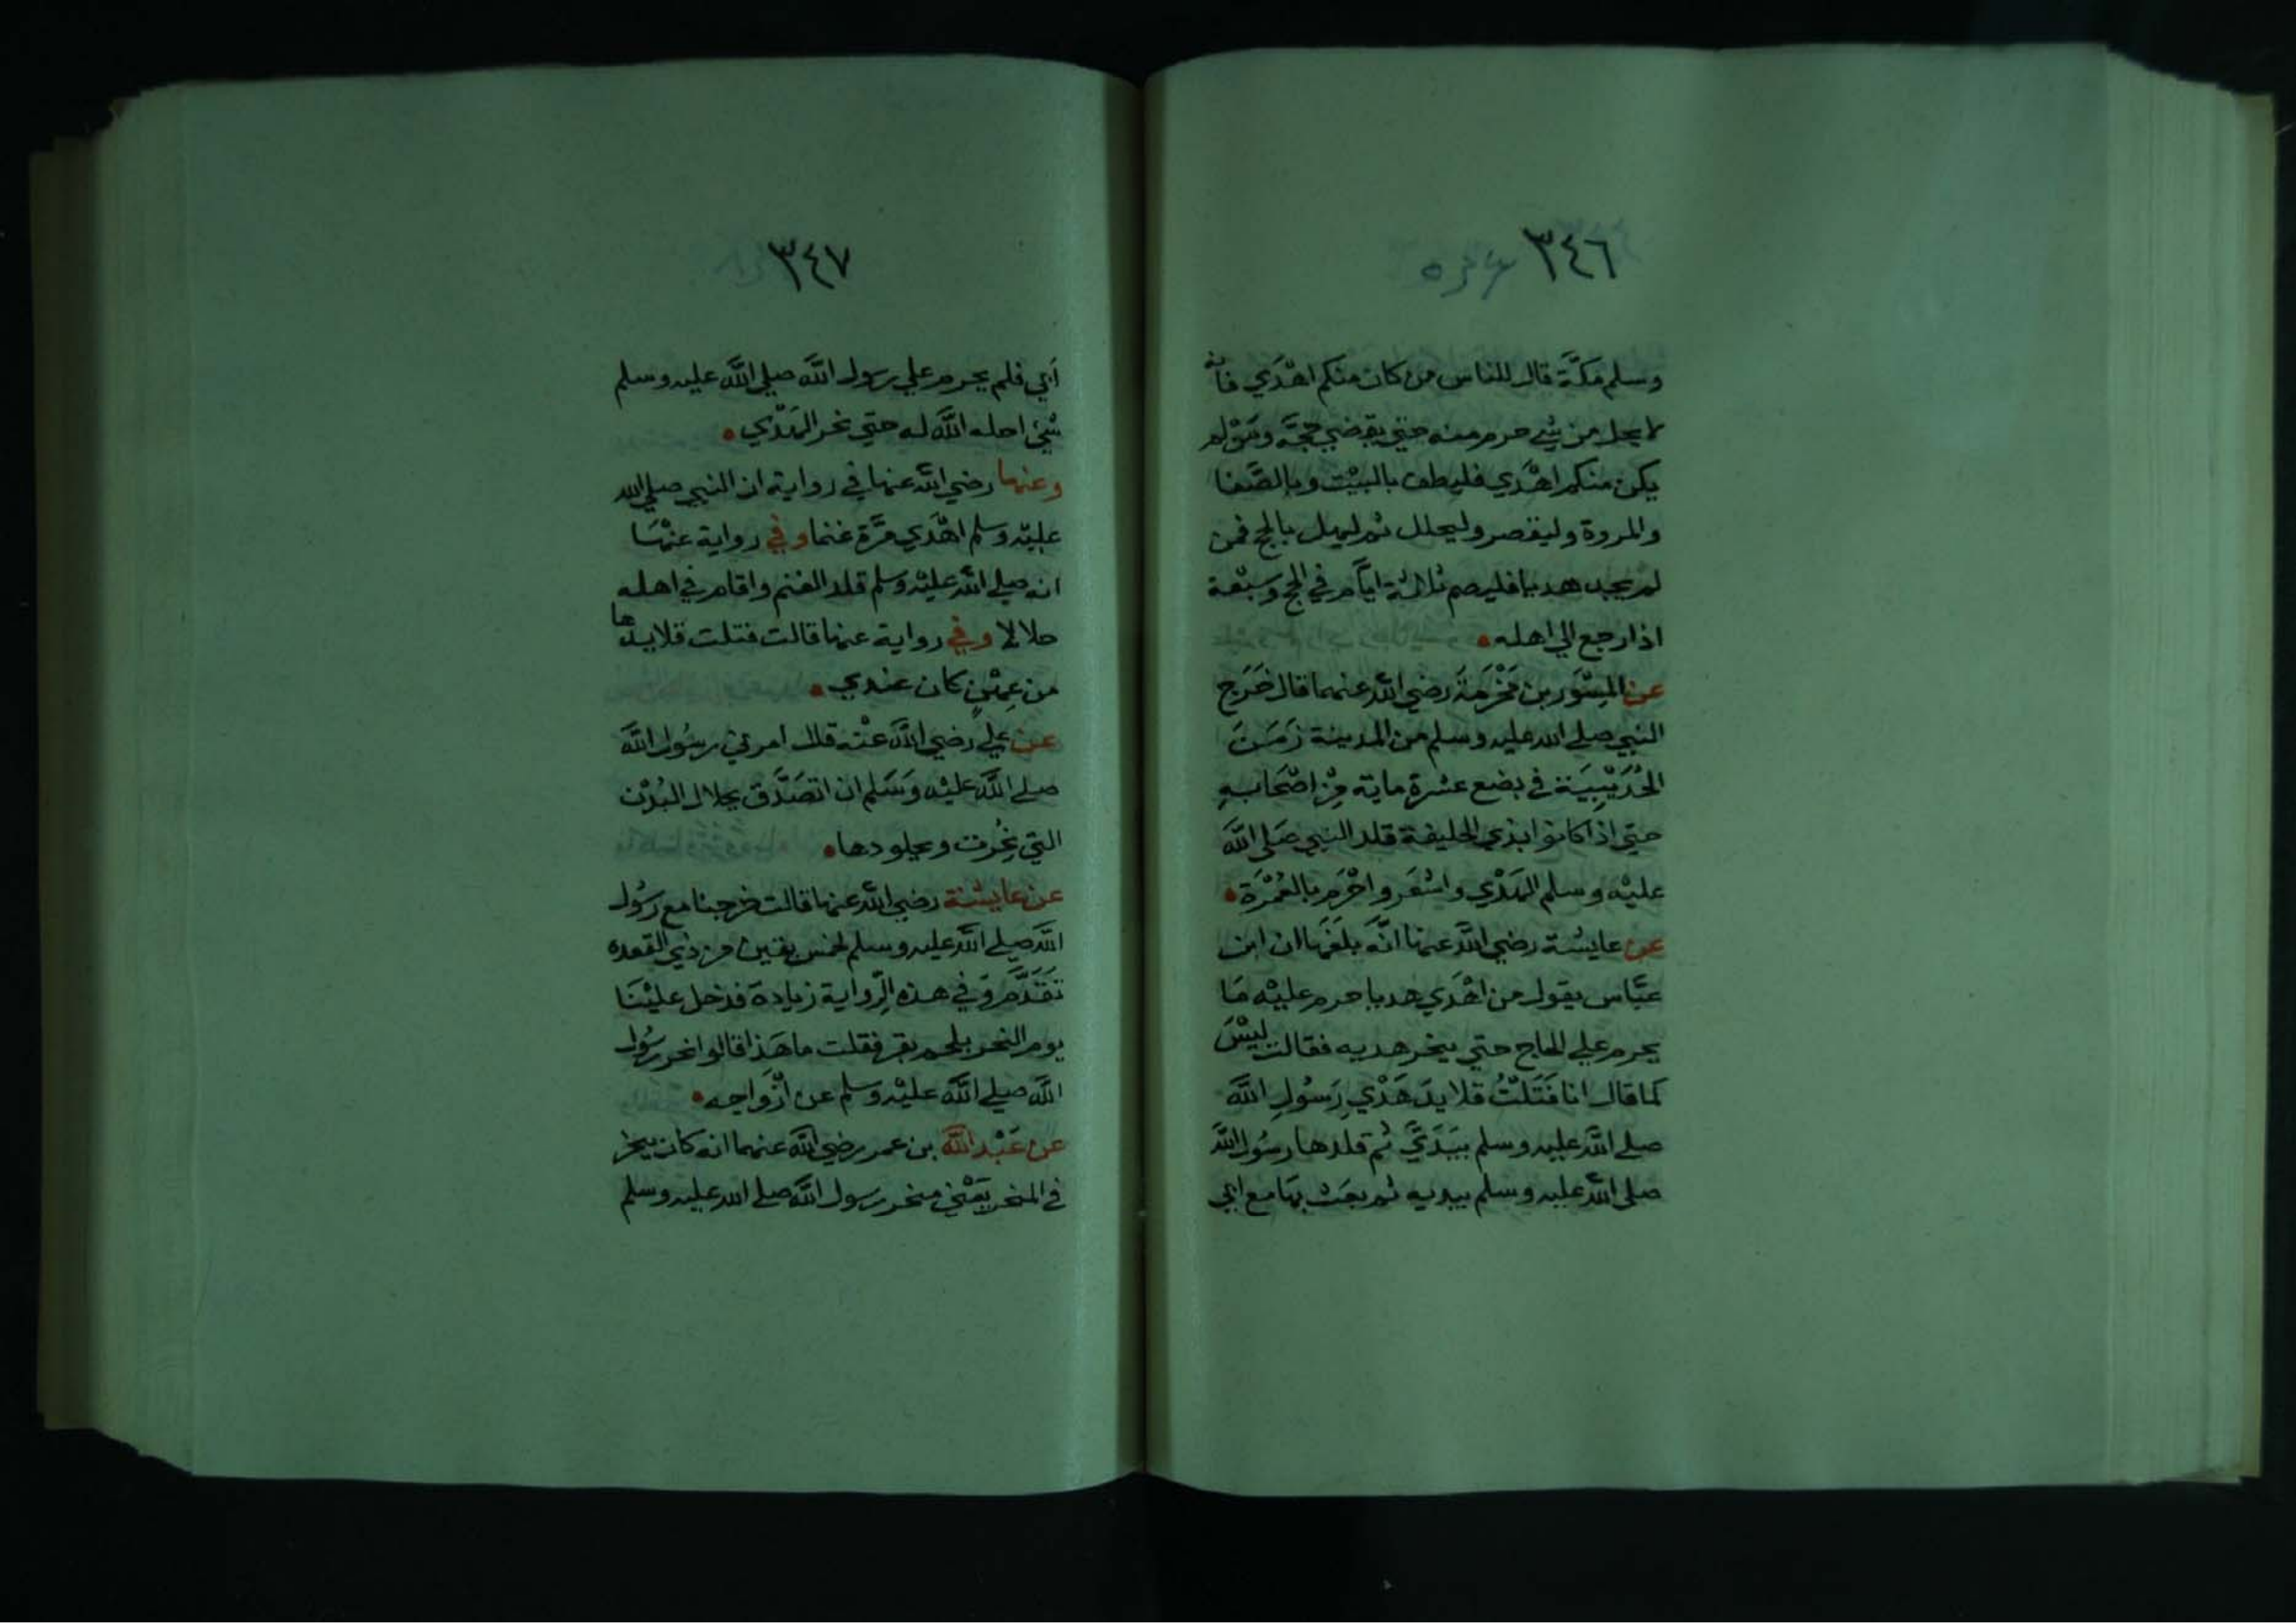 ٣٤٦
وسلم مَكَّةَ قال للناس من كان منكم اهْدَي فانه
لا يحل من شي حرم منه حتي يقضي حَجَّه ومَنْ لم
يكن منكم اهْدَي فليطف بالبيْت وبالصَّفا
والمروة وليقصر وليحلل ثم ليهل بالحج فمن
لم يجد هديا فليصم ثلاثة ايَّام في الحج وسَبْعة
اذا رجع الي اهله
عن المِسْوَر بن مَخْرَمَةَ رضي الله عنهما قال خَرَج
النبي صلي الله عليه وسلم من المدينة زَمَنَ
الحُدَيْبِيَة في بضع عشرة ماية مِنْ اصْحَابِهِ
حتي اذا كانوا بذي الحليفة قلد النبي صَلي اللَّه
عليْه وسلم الهَدْي واشْعَر واحْرَم بالعُمْرَة
عن عايشة رضي اللَّه عنها انَّه بلغَها ان ابن
عبَّاس يقول من اهْدَي هديا حرم عليْه مَا
يحرم علي الحاج حتي ينحر هديه فقالت ليْسَ
كما قال انا فَتَلْتُ قلايدَ هَدْيِ رَسُولِ اللَّه
صلي اللَّه عليه وسلم بيَدَيَّ ثم قلدها رسُول اللَّه
صلي اللَّه عليه وسلم بيديه ثم بعَث بهَا مع ابي
٣٤٧
أبي فلم يحرم علي رسول اللَّه صلي اللَّه عليه وسلم
شيْ احله اللَّه له حتي نحر الهَدْي
وعنها رضي اللَّه عنها في رواية ان النبي صلي الله
عليْه وسلم اهْدَي مَرَّة غنما وفي رواية عنْهَا
انه صلي اللَّه عليْه وسلم قلد الغنم واقام في اهله
حلالا وفي رواية عنها قالت فتلت قلايدها
من عِهْنٍ كان عندي
عن علي رضي اللَّه عنْه قال امرني رسُول اللَّه
صلي اللَّه عليْه وَسَلم ان اتصَدَّق بجلال البُدْن
التي نُحِرَت وبجلودها
عن عايشة رضي اللَّه عنها قالت خرجنا مع رسُول
اللَّه صلي اللَّه عليه وسلم لخمس بقين من ذي القعده
تَقَدَّمَ وفي هذه الرِّواية زيادة فدخل عليْنَا
يوم النحر بلحم بقر فقلت ما هَذا قالوا نحر رسُول
اللَّه صلي اللَّه عليْه وسلم عن أزْوَاجه
عن عَبْد اللَّه بن عمر رضي اللَّه عنهما انه كان ينحر
في المنحر يَعْني منحر رسول اللَّه صلي الله عليه وسلم